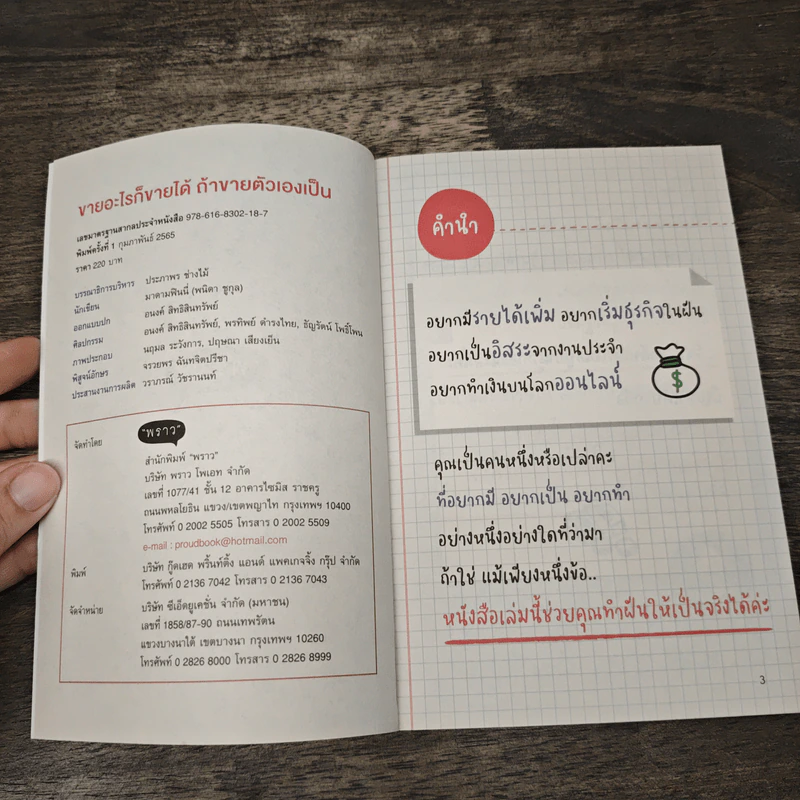 ขายอะไรก็ขายได้ ถ้าขายตัวเองเป็น
เลขมาตรฐานสากลประจำหนังสือ 978-616-8302-18-7
พิมพ์ครั้งที่ 1 กุมภาพันธ์ 2565
ราคา 220 บาท
บรรณาธิการบริหาร ประภาพร ช่างไม้
นักเขียน มาดามฟินนี่ (พนิดา ชูกุล)
ออกแบบปก อนงค์ สิทธิสินทรัพย์
ศิลปกรรม อนงค์ สิทธิสินทรัพย์, พรทิพย์ ดำรงไทย, ธัญรัตน์ โพธิ์โพน
ภาพประกอบ นฤมล ระวังการ, ปฤษณา เสียงเย็น
พิสูจน์อักษร จรวยพร ฉันทจิตปรีชา
ประสานงานการผลิต วราภรณ์ วัชรานนท์
จัดทำโดย "พราว"
สำนักพิมพ์ "พราว"
บริษัท พราว โพเอท จำกัด
เลขที่ 1077/41 ชั้น 12 อาคารไซมิส ราชครู
ถนนพหลโยธิน แขวง/เขตพญาไท กรุงเทพฯ 10400
โทรศัพท์ 0 2002 5505 โทรสาร 0 2002 5509
e-mail : proudbook@hotmail.com
พิมพ์ บริษัท กู๊ดเฮด พริ้นท์ติ้ง แอนด์ แพคเกจจิ้ง กรุ๊ป จำกัด
โทรศัพท์ 0 2136 7042 โทรสาร 0 2136 7043
จัดจำหน่าย บริษัท ซีเอ็ดยูเคชั่น จำกัด (มหาชน)
เลขที่ 1858/87-90 ถนนเทพรัตน
แขวงบางนาใต้ เขตบางนา กรุงเทพฯ 10260
โทรศัพท์ 0 2826 8000 โทรสาร 0 2826 8999
คำนำ
อยากมีรายได้เพิ่ม อยากเริ่มธุรกิจในฝัน
อยากเป็นอิสระจากงานประจำ
อยากทำเงินบนโลกออนไลน์
$
คุณเป็นคนหนึ่งหรือเปล่าคะ
ที่อยากมี อยากเป็น อยากทำ
อย่างหนึ่งอย่างใดที่ว่ามา
ถ้าใช่ แม้เพียงหนึ่งข้อ..
หนังสือเล่มนี้ช่วยคุณทำฝันให้เป็นจริงได้ค่ะ
3